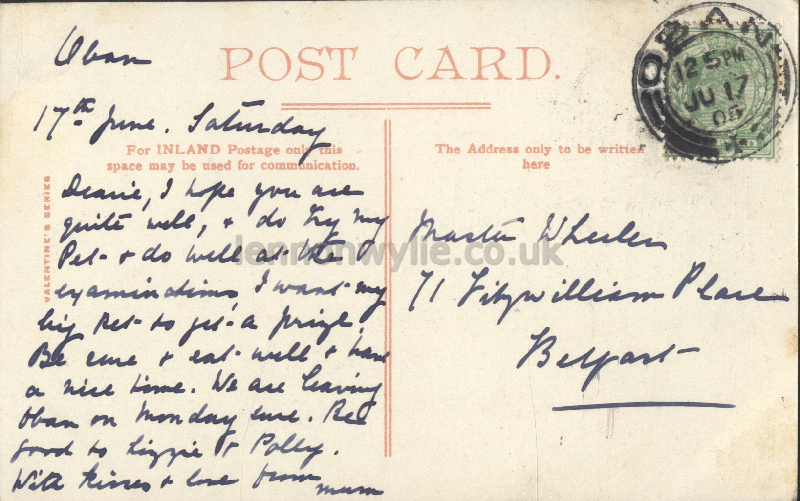 Oban
17th June. Saturday
POST CARD.
For INLAND Postage only this
space may be used for communication.
The Address only to be written
here
VALENTINE'S SERIES
Dearie, I hope you are
quite well, & do try my
Pet & do well at the
examinations, I want my
big Pet to get a prize,
Be sure & eat well & have
a nice time. We are leaving
Oban on Monday eve. Be
good to Lizzie & Polly.
With kisses & love from
mum
Master Wheeler
71 Fitzwilliam Place
Belfast
OBAN
12 5 PM
JU 17
05
lennonwylie.co.uk